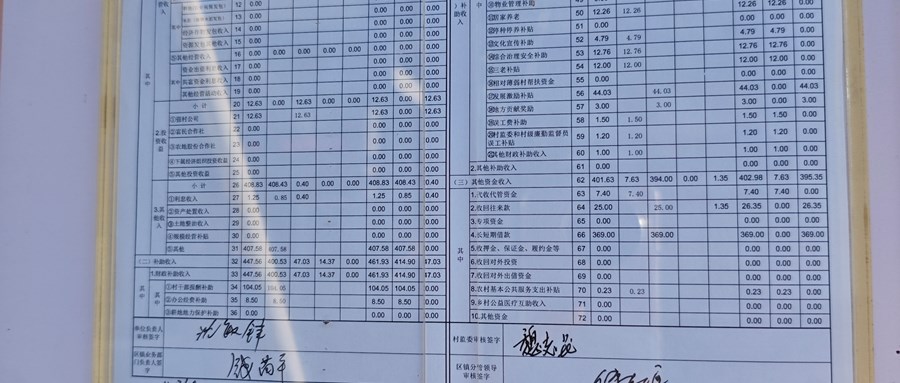 12 0.00 0.00 0.00 0.00
13 0.00 0.00 0.00 0.00
经济作物发包收入 14 0.00 0.00 0.00 0.00
资源发包其他收入 15 0.00 0.00 0.00 0.00
⑤其他经营收入 16 0.00 0.00 0.00 0.00 0.00 0.00 0.00 0.00
17 0.00 0.00 0.00 0.00
18 0.00 0.00 0.00 0.00
其他经营活动收入 19 0.00 0.00 0.00 0.00
小计 20 12.63 0.00 12.63 0.00 0.00 12.63 0.00 12.63
①强村公司 21 12.63 12.63 12.63 0.00 12.63
②富民合作社 22 0.00 0.00 0.00 0.00
③农地股份合作社 23 0.00 0.00 0.00 0.00
24 0.00 0.00 0.00 0.00
⑤其他投资收益 25 0.00 0.00 0.00 0.00
小计 26 408.83 408.43 0.40 0.00 0.00 408.83 408.43 0.40
①利息收入 27 1.25 0.85 0.40 1.25 0.85 0.40
②资产处置收入 28 0.00 0.00 0.00 0.00
③土地整治收入 29 0.00 0.00 0.00 0.00
30 0.00 0.00 0.00 0.00
⑤其他 31 407.58 407.58 407.58 407.58 0.00
(二)补助收入 32 447.56 400.53 47.03 14.37 0.00 461.93 414.90 47.03
1.财政补助收入 33 447.56 400.53 47.03 14.37 0.00 461.93 414.90 47.03
①村干部报酬补助 34 104.05 104.05 104.05 104.05 0.00
②办公经费补助 35 8.50 8.50 8.50 8.50 0.00
③耕地地力保护补助 36 0.00 0.00 0.00 0.00
单位负责人审核签字
区镇业务部门负责人签字
⑭物业管理补助 49 12.26 0.00
⑮居家养老 50 12.26 12.26 12.26 12.26 0.00
51 0.00 0.00 0.00 0.00
⑰文化宣传补助 52 4.79 4.79 4.79 4.79 0.00
⑱综合治理安全补助 53 12.76 12.76 12.76 12.76 0.00
⑲三老补贴 54 12.00 12.00 12.00 12.00 0.00
⑳相对薄弱村帮扶资金 55 0.00 0.00 0.00 0.00
发展激励补贴 56 44.03 44.03 44.03 0.00 44.03
地方贡献奖励 57 3.00 3.00 3.00 0.00 3.00
误工费补助 58 1.50 1.50 1.50 1.50 0.00
村监委和村级廉勤监督员误工补贴 59 1.20 1.20 1.20 1.20 0.00
其他财政补助收入 60 1.00 1.00 1.00 1.00 0.00
2.其他补助收入 61 0.00 0.00 0.00 0.00
(三)其他资金收入 62 401.63 7.63 394.00 0.00 1.35 402.98 7.63 395.35
1.代收代管资金 63 7.40 7.40 7.40 7.40 0.00
2.收回往来款 64 25.00 25.00 1.35 26.35 0.00 26.35
3.专项资金 65 0.00 0.00 0.00 0.00
4.长短期借款 66 369.00 369.00 369.00 0.00 369.00
5.收押金、保证金、履约金等 67 0.00 0.00 0.00 0.00
6.收回对外投资 68 0.00 0.00 0.00 0.00
7.收回对外出借资金 69 0.00 0.00 0.00 0.00
8.农村基本公共服务支出补贴 70 0.23 0.23 0.23 0.23 0.00
9.乡村公益医疗互助收入 71 0.00 0.00 0.00 0.00
10.其他资金 72 0.00 0.00 0.00 0.00
村监委审核签字
区镇分管领导审核签字